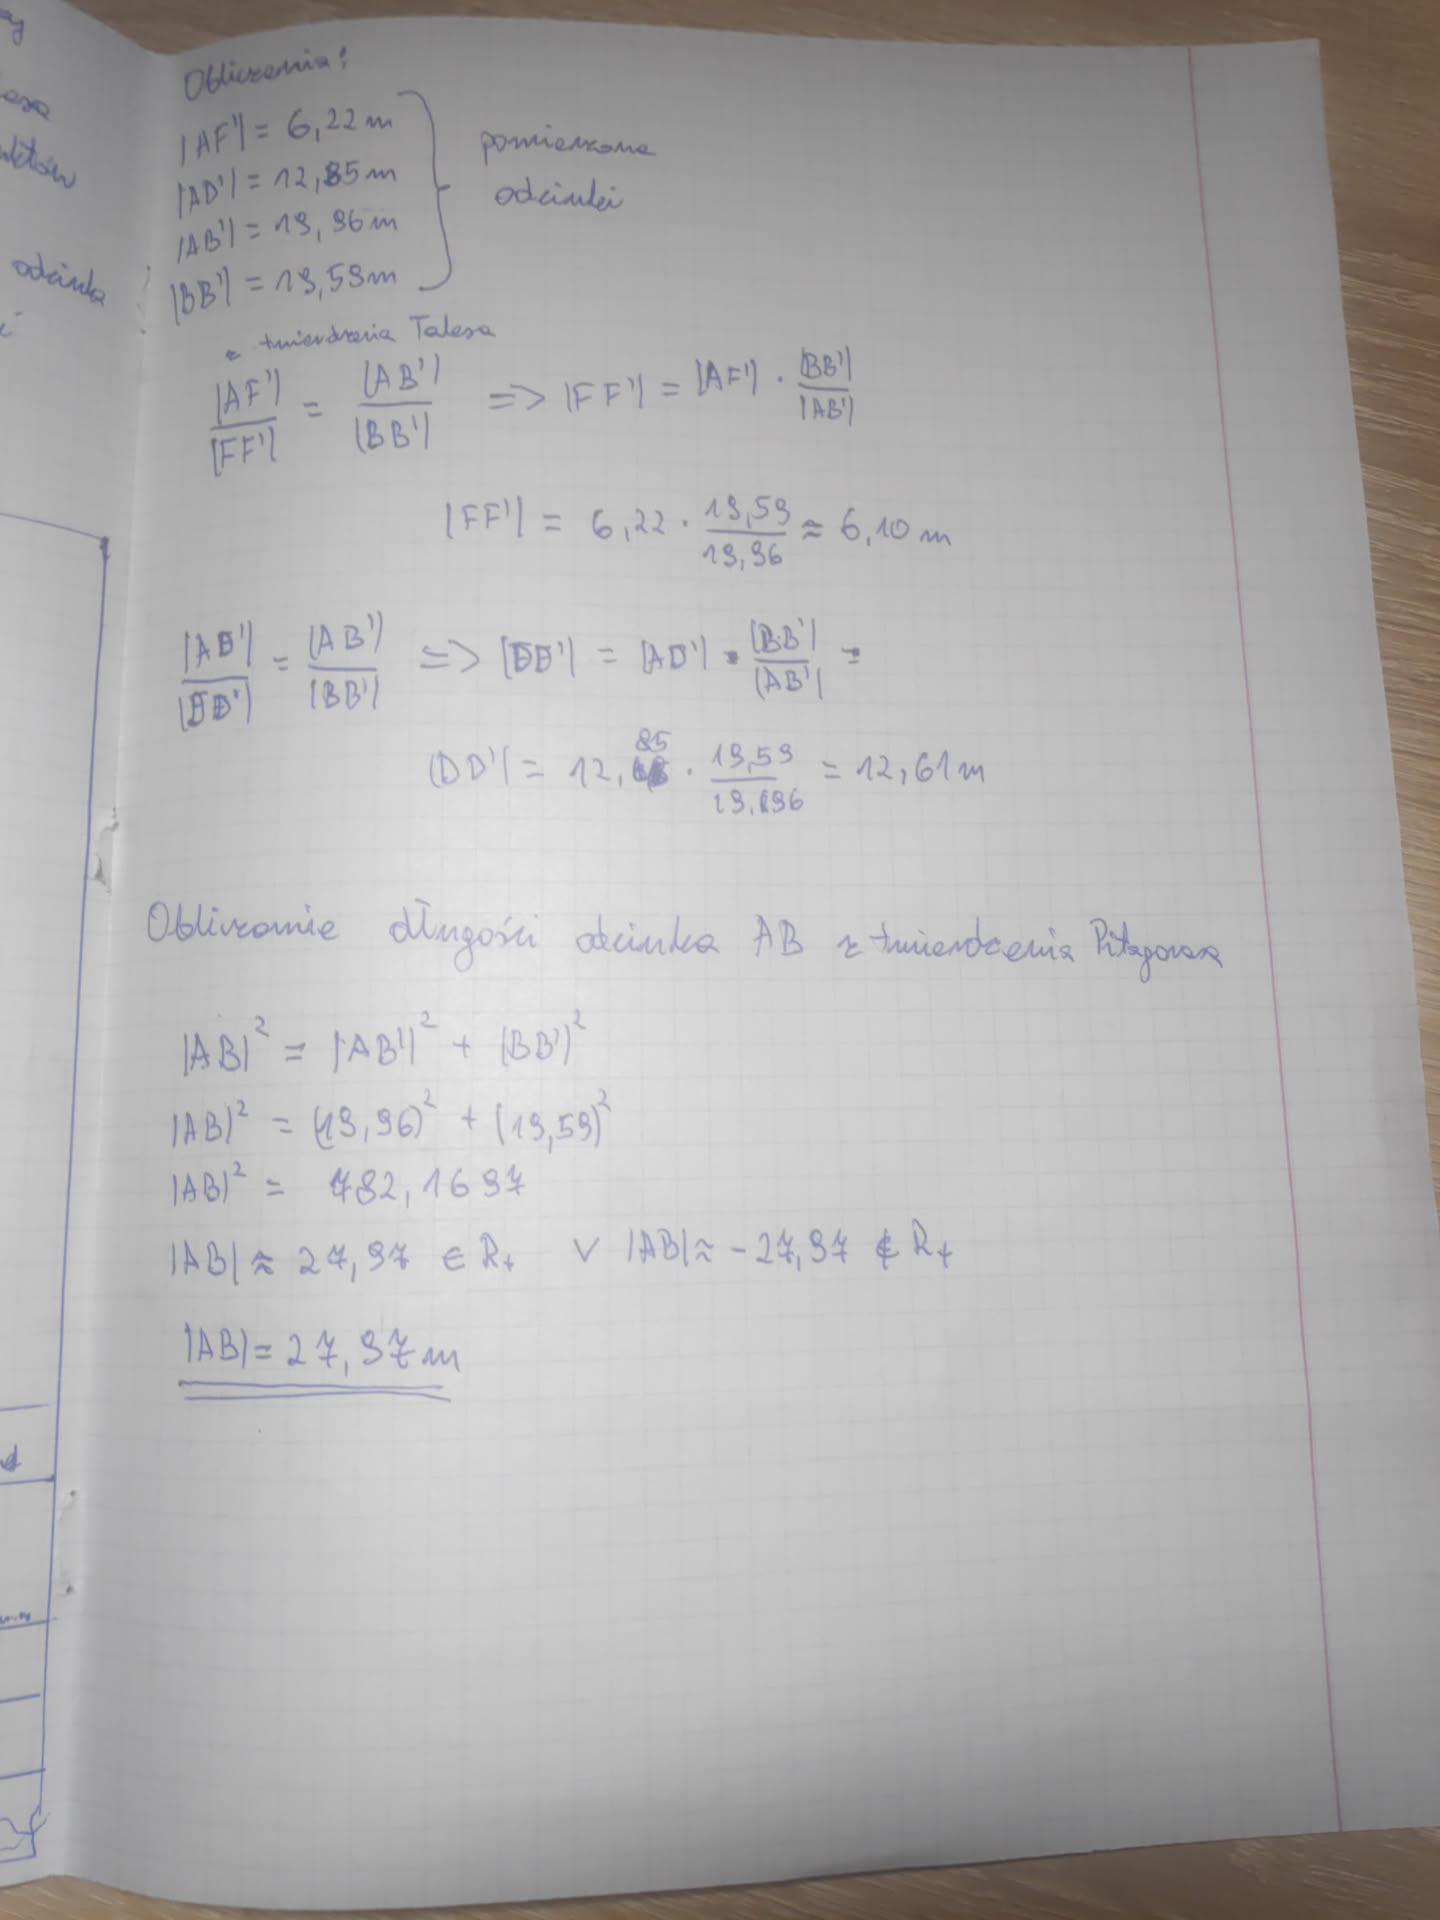 odcinka
Obliczenia:
|AF'| = 6,22m
|AD'| = 12,85m
|AB'| = 19,96m
|BB'| = 19,59m
pomierzone
odcinki
z twierdzenia Talesa
|AF'| / |FF'| = |AB'| / |BB'| => |FF'| = |AF'| · |BB'| / |AB'|
|FF'| = 6,22 · 19,59 / 19,96 ≈ 6,10 m
|AD'| / |DD'| = |AB'| / |BB'| => |DD'| = |AD'| · |BB'| / |AB'| =
|DD'| = 12,85 · 19,59 / 19,96 = 12,61m
Obliczanie długości odcinka AB z twierdzenia Pitagorasa
|AB|² = |AB'|² + |BB'|²
|AB|² = (19,96)² + (19,59)²
|AB|² = 782,1697
|AB| ≈ 27,97 ∈ R+ v |AB| ≈ -27,97 ∉ R+
|AB| = 27,97m